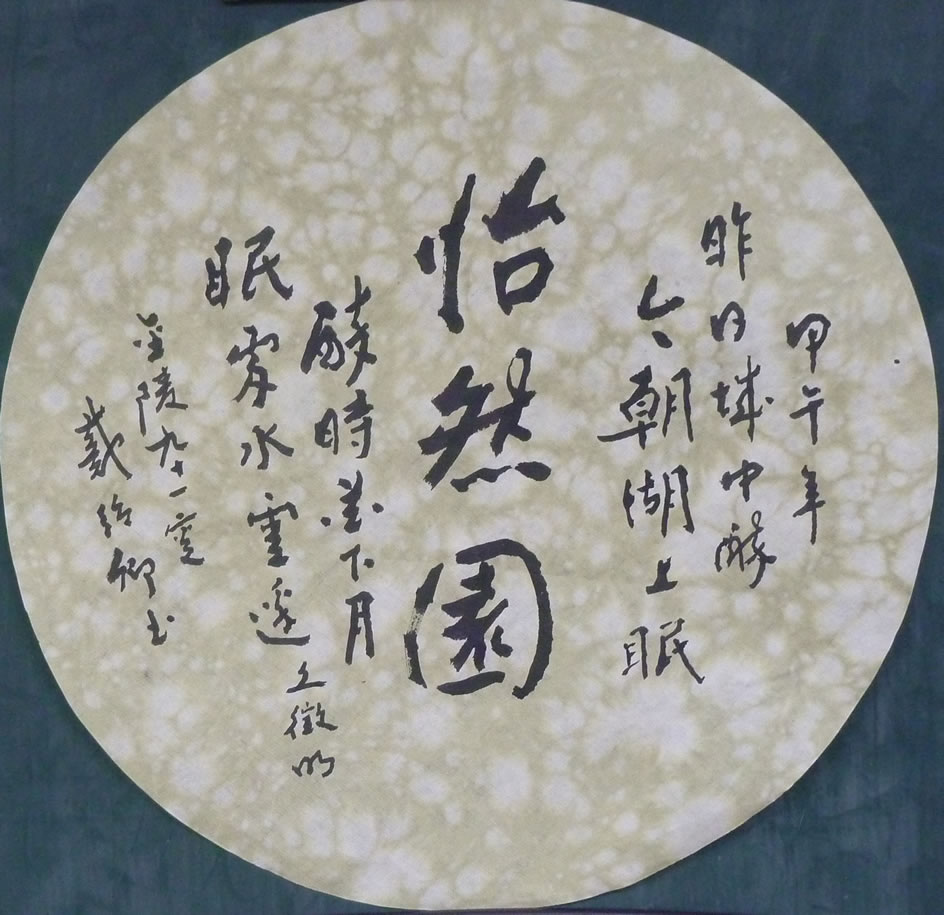 甲午年
昨日城中醉
今朝湖上眠
怡然園
醉時花下月
眠處水雲邊
文徵明
金陵九十一叟
戴紹卿书